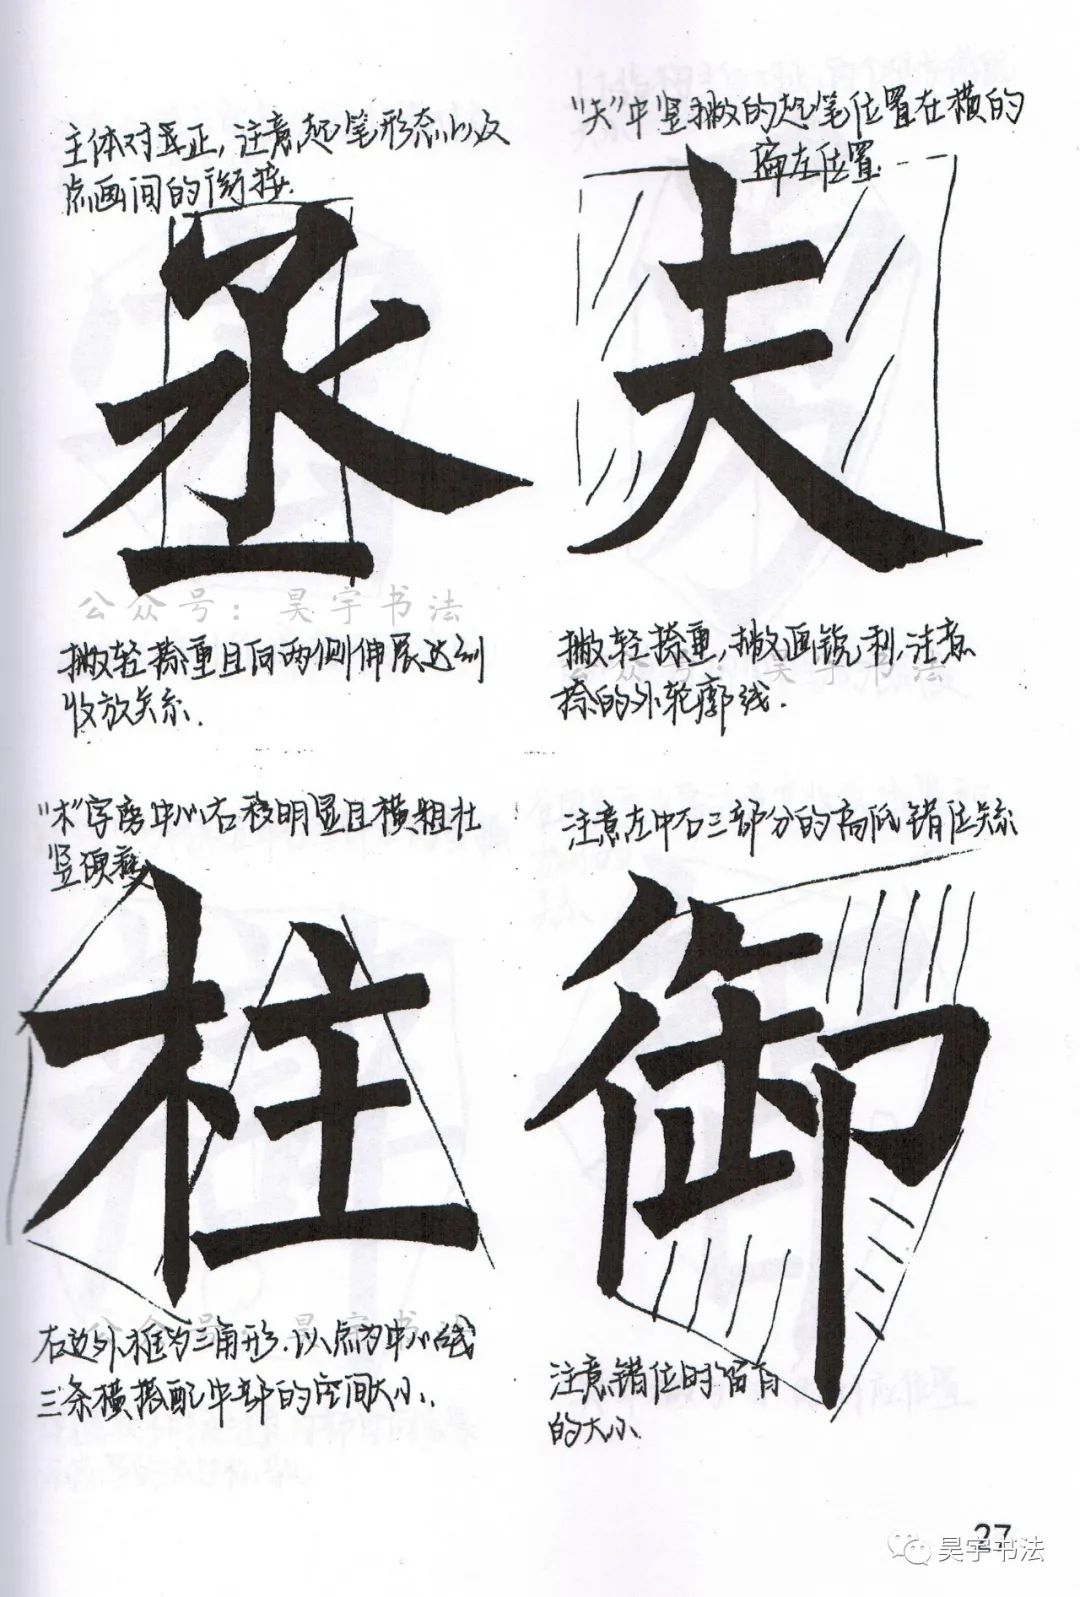 主体对置正，注意起笔形态以及
点画间的衔接.
丞
公众号：昊宇书法
撇轻捺重且向两侧伸展达到
收放关系.
"夫"中竖撇的起笔位置在横的
偏左位置.
夫
撇轻捺重，撇画锐利，注意
公众号：昊宇书法
捺的外轮廓线.
"木"字旁中心右移明显且横粗壮
竖硬
柱
公众号：昊宇书法
右边外框为三角形.以点为中心线
三条横搭配中部的空间大小.
注意左中右三部分的高低错位关系
御
注意错位时留有
的大小
27
昊宇书法